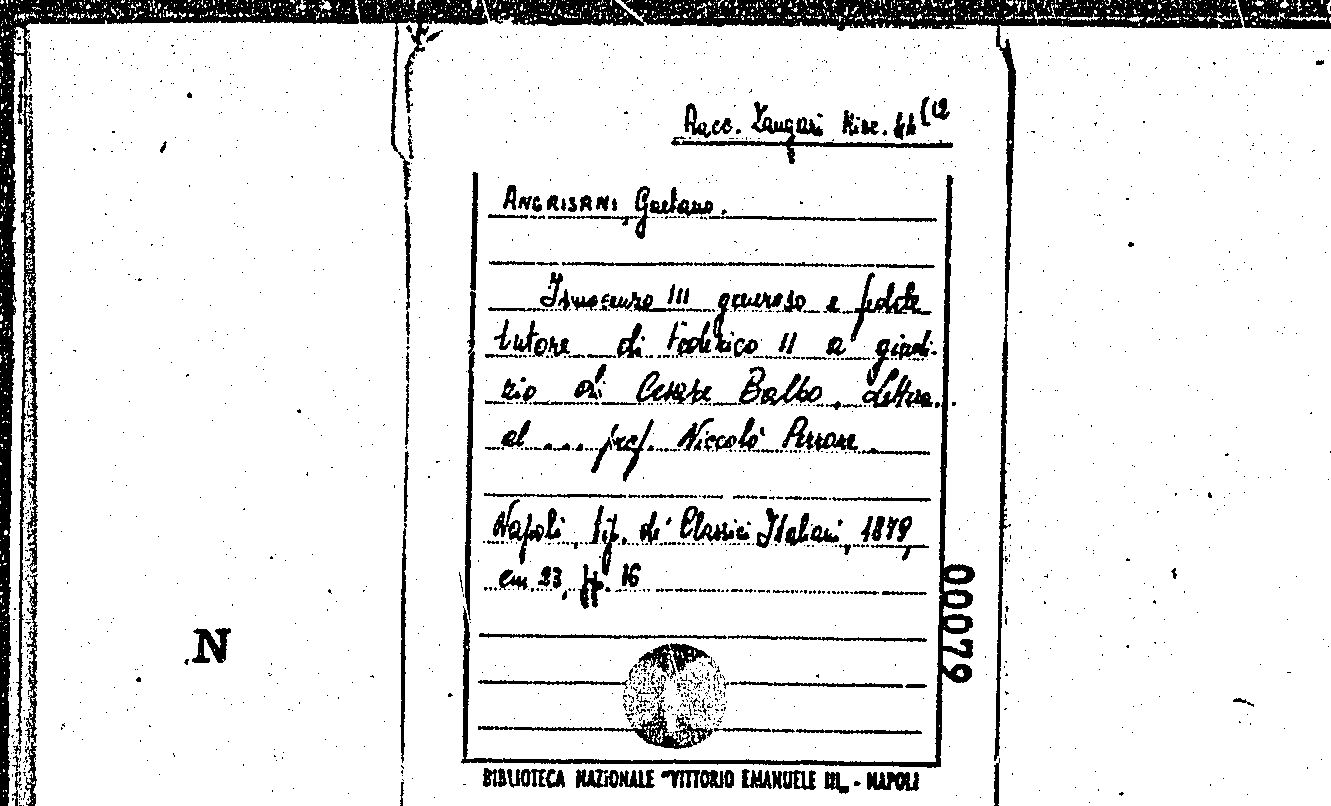 Racc. Zangari Misc. 44 (12
ANGRISANI, Gaetano.
Innocenzo III generoso e fedele
tutore di Federico II a giudi-
zio di Cesare Balbo. Lettera
al ... prof. Niccolò Perrone.
Napoli, tip. de' Classici Italiani, 1879,
cm 23, pp. 16
00079
N
BIBLIOTECA NAZIONALE "VITTORIO EMANUELE III„ - NAPOLI